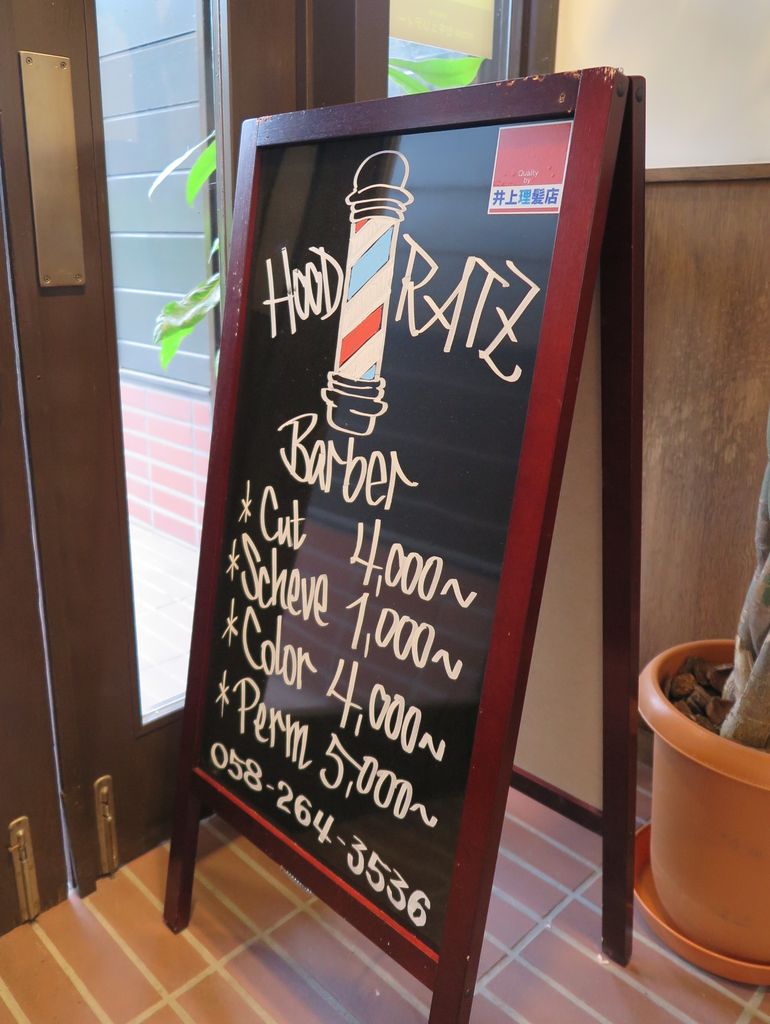 Quality
by
井上理髪店
HOOD RATZ
Barber
* Cut 4,000~
* Scheve 1,000~
* Color 4,000~
* Perm 5,000~
058-264-3536